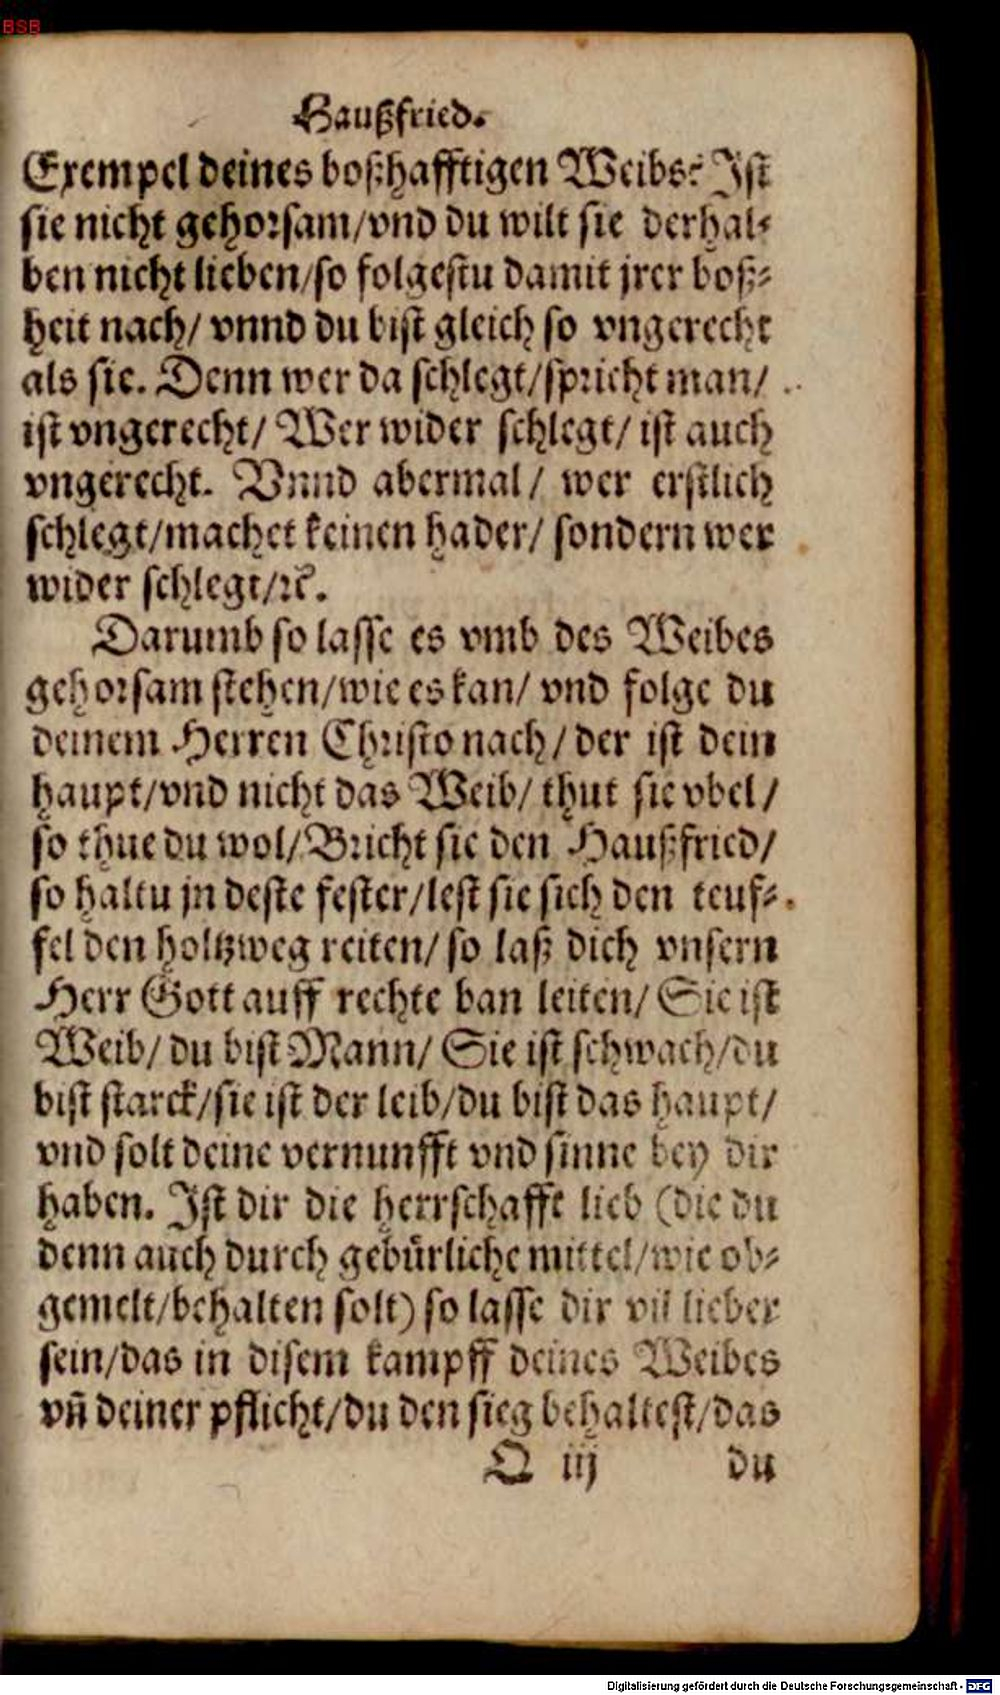 BSB
Haußfried.
Exempel deines boßhafftigen Weibs? Ist
sie nicht gehorsam/vnd du wilt sie derhal-
ben nicht lieben/so folgestu damit jrer boß-
heit nach/ vnnd du bist gleich so vngerecht
als sie. Denn wer da schlegt/spricht man/
ist vngerecht/ Wer wider schlegt/ ist auch
vngerecht. Vnnd abermal/ wer erstlich
schlegt/machet keinen hader/ sondern wer
wider schlegt/ꝛc.
Darumb so lasse es vmb des Weibes
gehorsam stehen/wie es kan/ vnd folge du
deinem Herren Christo nach/ der ist dein
haupt/vnd nicht das Weib/ thut sie vbel/
so thue du wol/Bricht sie den Haußfried/
so haltu jn deste fester/lest sie sich den teuf-
fel den holtzweg reiten/ so laß dich vnsern
Herr Gott auff rechte ban leiten/ Sie ist
Weib/ du bist Mann/ Sie ist schwach/du
bist starck/sie ist der leib/du bist das haupt/
vnd solt deine vernunfft vnd sinne bey dir
haben. Ist dir die herrschafft lieb (die du
denn auch durch gebürliche mittel/wie ob-
gemelt/behalten solt) so lasse dir vil lieber
sein/das in disem kampff deines Weibes
vñ deiner pflicht/du den sieg behaltest/das
Q iij du
Digitalisierung gefördert durch die Deutsche Forschungsgemeinschaft - DFG